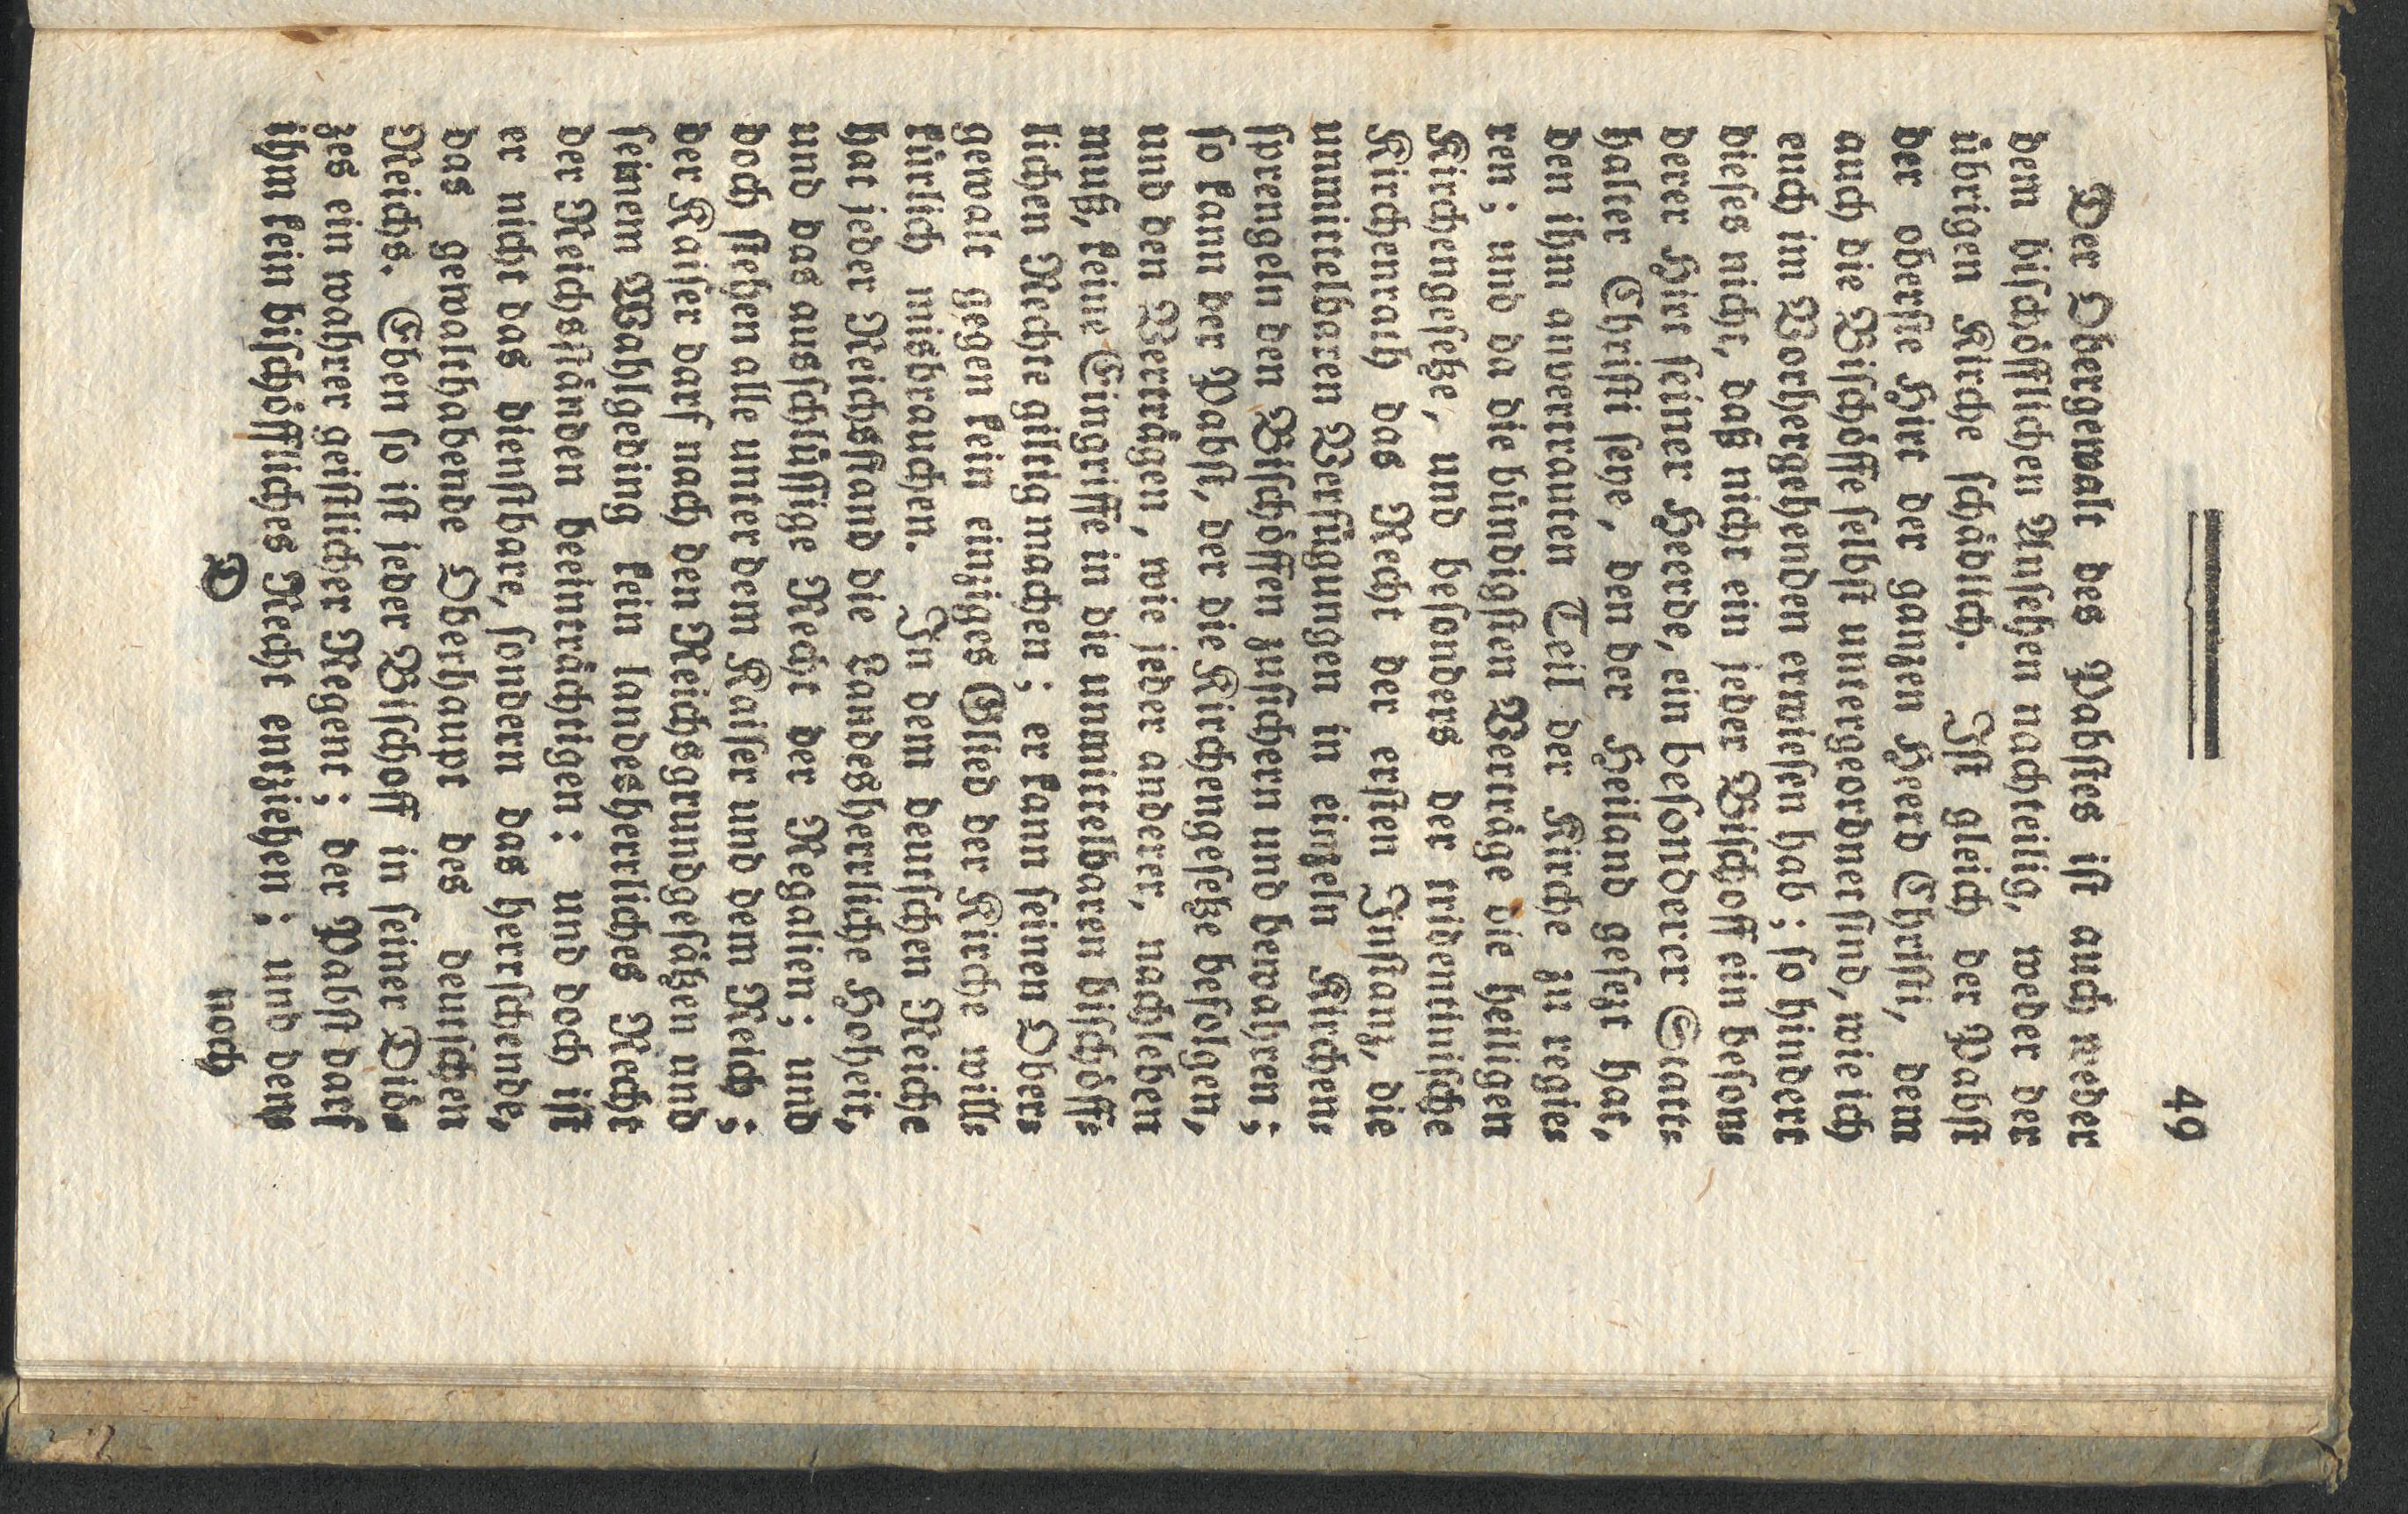 49
Der Obergewalt des Pabstes ist auch weder
dem bischöfflichen Ansehen nachteilig, weder der
übrigen Kirche schädlich. Ist gleich der Pabst
der oberste Hirt der ganzen Heerd Christi, dem
auch die Bischöffe selbst untergeordnet sind, wie ich
euch im Vorhergehenden erwiesen hab; so hindert
dieses nicht, daß nicht ein jeder Bischoff ein beson-
derer Hirt seiner Heerde, ein besonderer Statt-
halter Christi seye, den der Heiland gesezt hat,
den ihm anvertrauten Teil der Kirche zu regie-
ren; und da die bündigsten Verträge die heiligen
Kirchengeseze, und besonders der tridentinische
Kirchenrath das Recht der ersten Instanz, die
unmittelbaren Verfügungen in einzeln Kirchen-
sprengeln den Bischöffen zusichern und bewahren;
so kann der Pabst, der die Kirchengeseze befolgen,
und den Verträgen, wie jeder anderer, nachleben
muß, keine Eingriffe in die unmittelbaren bischöff-
lichen Rechte giltig machen; er kann seinen Ober-
gewalt gegen kein einziges Glied der Kirche will-
kürlich misbrauchen. In dem deutschen Reiche
hat jeder Reichsstand die Landesherrliche Hoheit,
und das ausschlüssige Recht der Regalien; und
doch stehen alle unter dem Kaiser und dem Reich;
der Kaiser darf nach den Reichsgrundgesäzen und
seinem Wahlgeding kein landesherrliches Recht
der Reichsständen beeinträchtigen: und doch ist
er nicht das dienstbare, sondern das herrschende,
das gewalthabende Oberhaupt des deutschen
Reichs. Eben so ist jeder Bischoff in seiner Diö-
zes ein wahrer geistlicher Regent; der Pabst darf
ihm kein bischöffliches Recht entziehen; und dem
D
noch